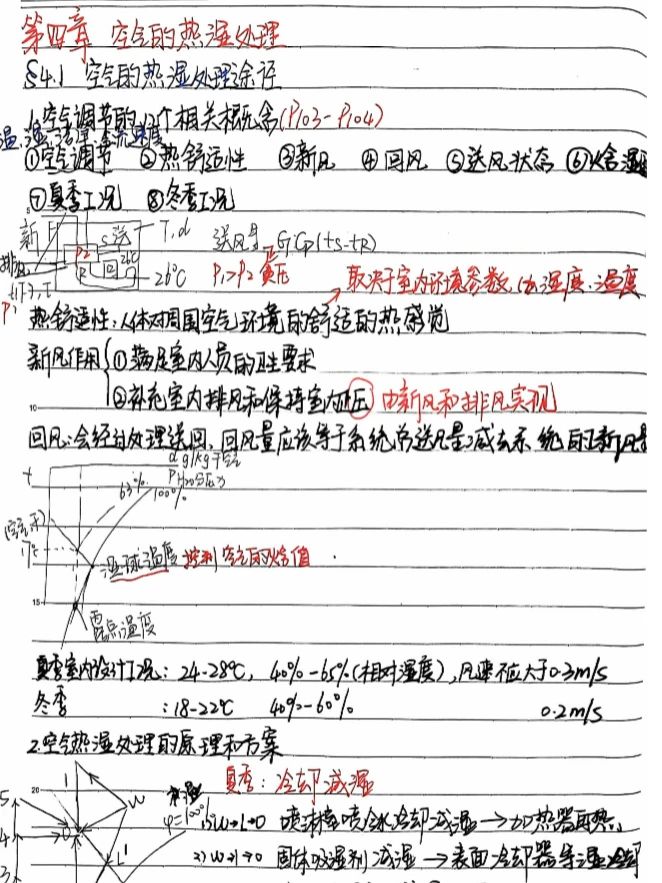 第四章 空气的热湿处理
§4.1 空气的热湿处理途径
1.空气调节的12个相关概念(P103-P104)
①空气调节 ②热舒适性 ③新风 ④回风 ⑤送风状态 ⑥焓湿
⑦夏季工况 ⑧冬季工况
新 送 T,d 送风量 G Cp(ts-tR)
排 P2 R 回 26℃ 26℃ P1>P2 负压 取决于室内环境参数,(如湿度、温度
P1
热舒适性:人体对周围空气环境的舒适的热感觉
新风作用 ①满足室内人员的卫生要求
②补充室内排风和保持室内正压 由新风和排风实现
10
回风:会经过处理送回,回风量应该等于系统总送风量减去系统的新风量
t d g/kg干空气
63% 100%
湿球温度 控制空气的焓值
15
露点温度
夏季室内设计工况:24-28℃, 40%-65%(相对湿度),风速不应大于0.3m/s
冬季 :18-22℃ 40%-60% 0.2m/s
2.空气热湿处理的原理和方案
20
夏季:冷却减湿
φ=100% 1)W→L→O 喷淋室喷冷水冷却减湿→加热器再热
2)W→1→O 固体吸湿剂减湿→表面冷却器等湿冷却
5 1 W
4 O
3 L'